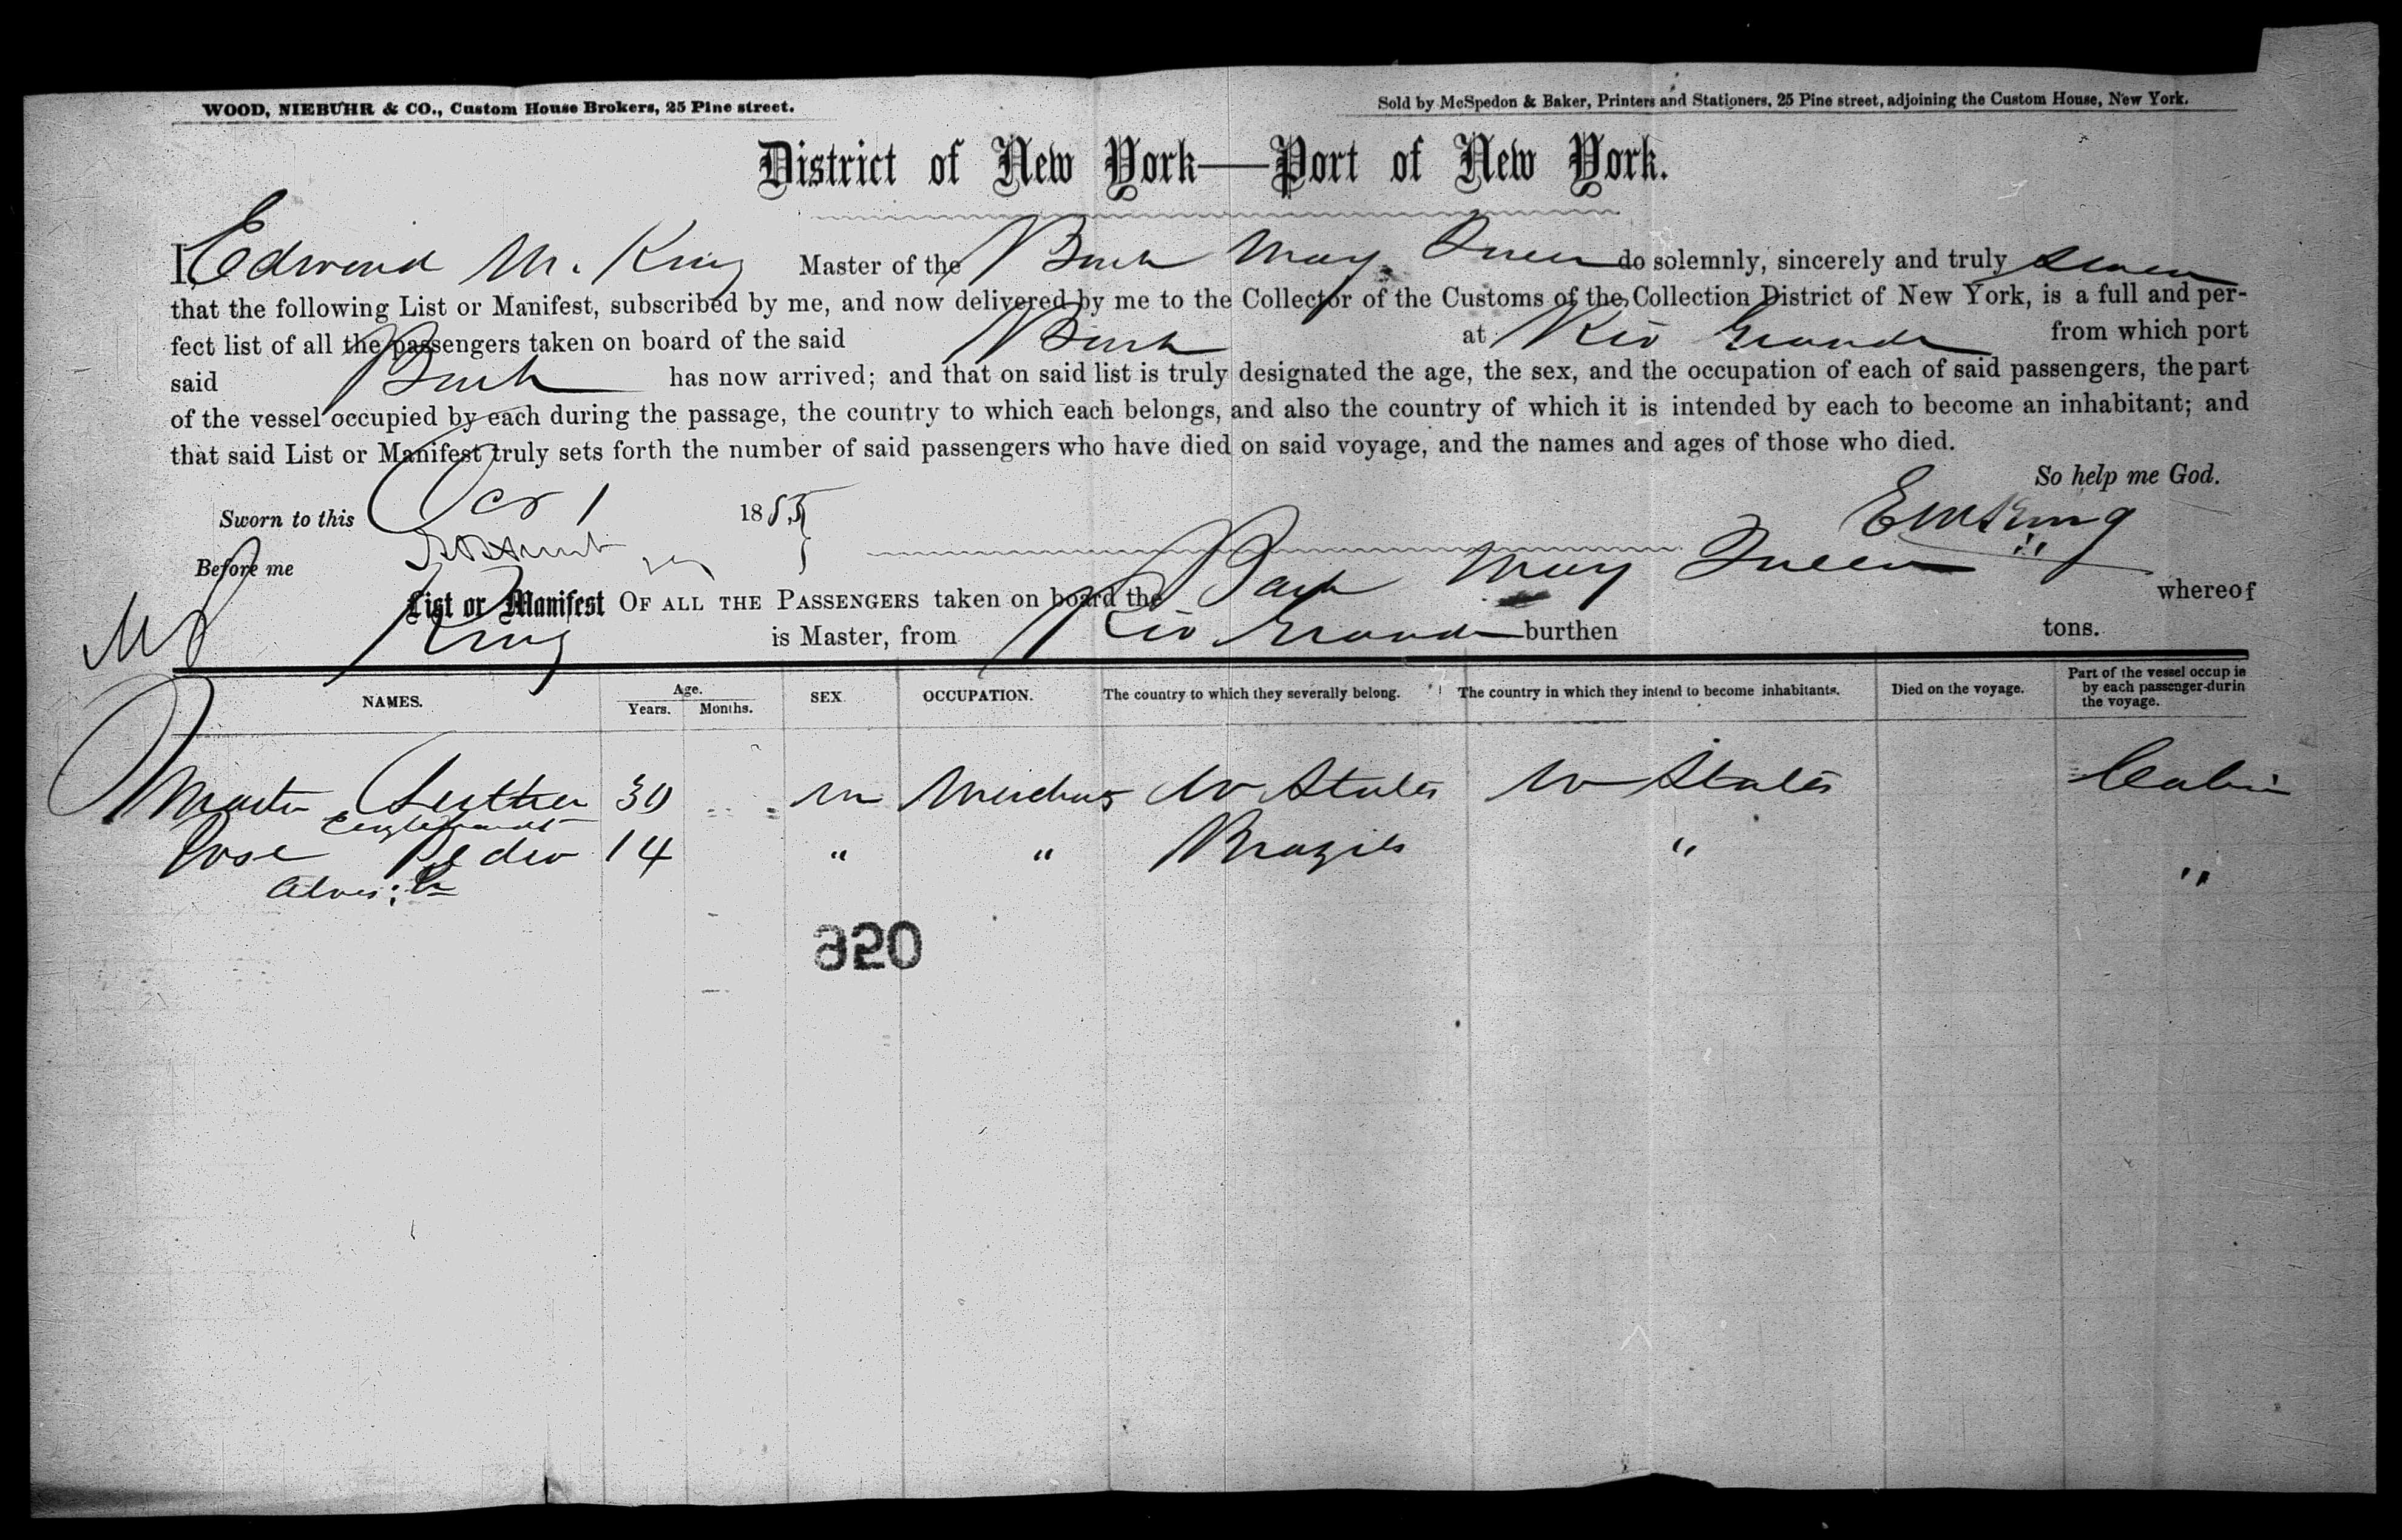 WOOD, NIEBUHR & CO., Custom House Brokers, 25 Pine street.
Sold by McSpedon & Baker, Printers and Stationers, 25 Pine street, adjoining the Custom House, New York.
District of New York—Port of New York.
I Edwin M. King Master of the Bark May Queen do solemnly, sincerely and truly swear
that the following List or Manifest, subscribed by me, and now delivered by me to the Collector of the Customs of the Collection District of New York, is a full and per-
fect list of all the passengers taken on board of the said Bark at Rio Grande from which port
said Bark has now arrived; and that on said list is truly designated the age, the sex, and the occupation of each of said passengers, the part
of the vessel occupied by each during the passage, the country to which each belongs, and also the country of which it is intended by each to become an inhabitant; and
that said List or Manifest truly sets forth the number of said passengers who have died on said voyage, and the names and ages of those who died.
So help me God.
Sworn to this Oct 1 1855
E M King
Before me
List or Manifest OF ALL THE PASSENGERS taken on board the Bark May Queen whereof
King is Master, from Rio Grande burthen tons.
NAMES. Age. Years. Months. SEX. OCCUPATION. The country to which they severally belong. The country in which they intend to become inhabitants. Died on the voyage. Part of the vessel occup in by each passenger durin the voyage.
Martin Luther 30 M Merchant U States U States Cabin
Jose Pedro 14 " " Brazils " "
Alves
650